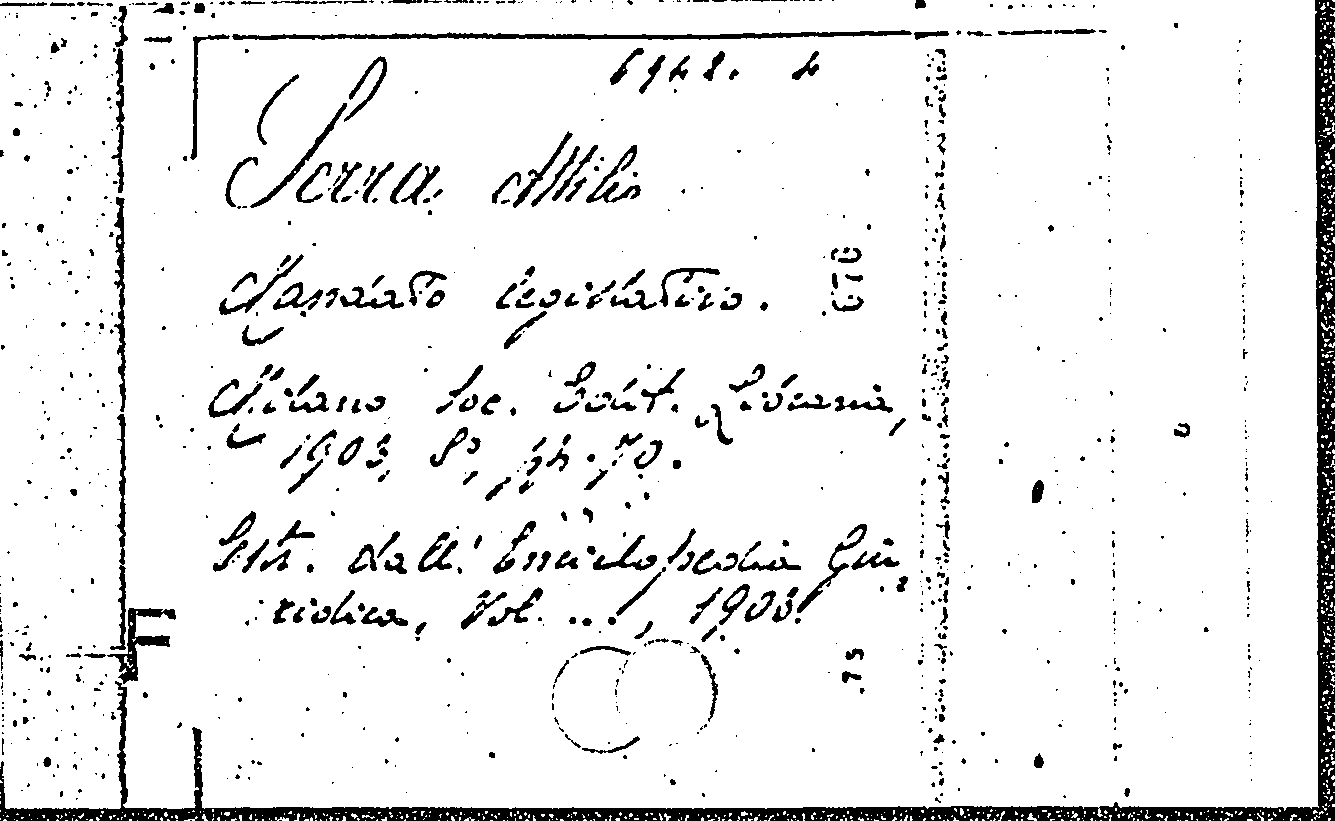 6948. 4
Serra Attilio
Mandato legislativo.
Milano Soc. Edit. Libraria,
1903, 8°, pp. 70.
Estr. dall' Enciclopedia Giu-
ridica, Vol. ..., 1903.